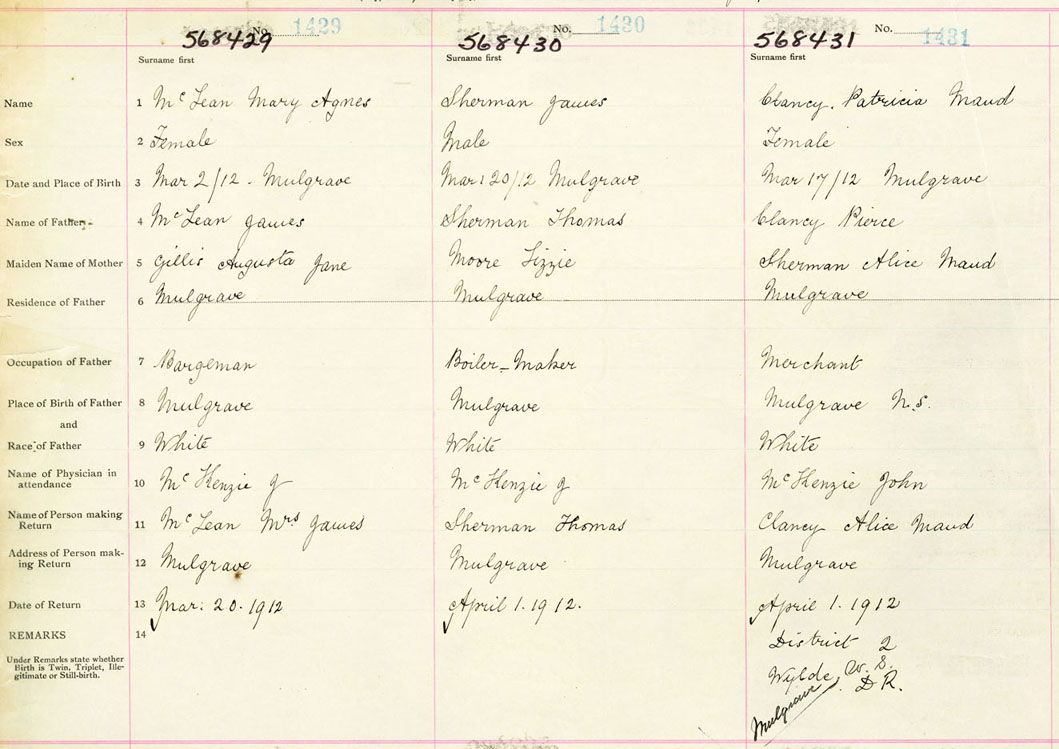 No. 1429 No. 1430 No. 1431
568429 568430 568431
Surname first Surname first Surname first
Name 1 McLean Mary Agnes Sherman James Clancy. Patricia Maud
Sex 2 Female Male Female
Date and Place of Birth 3 Mar 2/12 - Mulgrave Mar 20/12 Mulgrave Mar 17/12 Mulgrave
Name of Father 4 McLean James Sherman Thomas Clancy Pierce
Maiden Name of Mother 5 Gillis Augusta Jane Moore Lizzie Sherman Alice Maud
Residence of Father 6 Mulgrave Mulgrave Mulgrave
Occupation of Father 7 Bargeman Boiler-Maker Merchant
Place of Birth of Father 8 Mulgrave Mulgrave Mulgrave N.S.
and
Race of Father 9 White White White
Name of Physician in
attendance 10 McKenzie J McKenzie J McKenzie John
Name of Person making
Return 11 McLean Mrs James Sherman Thomas Clancy Alice Maud
Address of Person mak-
ing Return 12 Mulgrave Mulgrave Mulgrave
Date of Return 13 Mar: 20. 1912 April 1. 1912. April 1. 1912
REMARKS 14
District 2
Under Remarks state whether
Birth is Twin, Triplet, Ille-
gitimate or Still-birth.
Wylde W. S.
D R.
Mulgrave